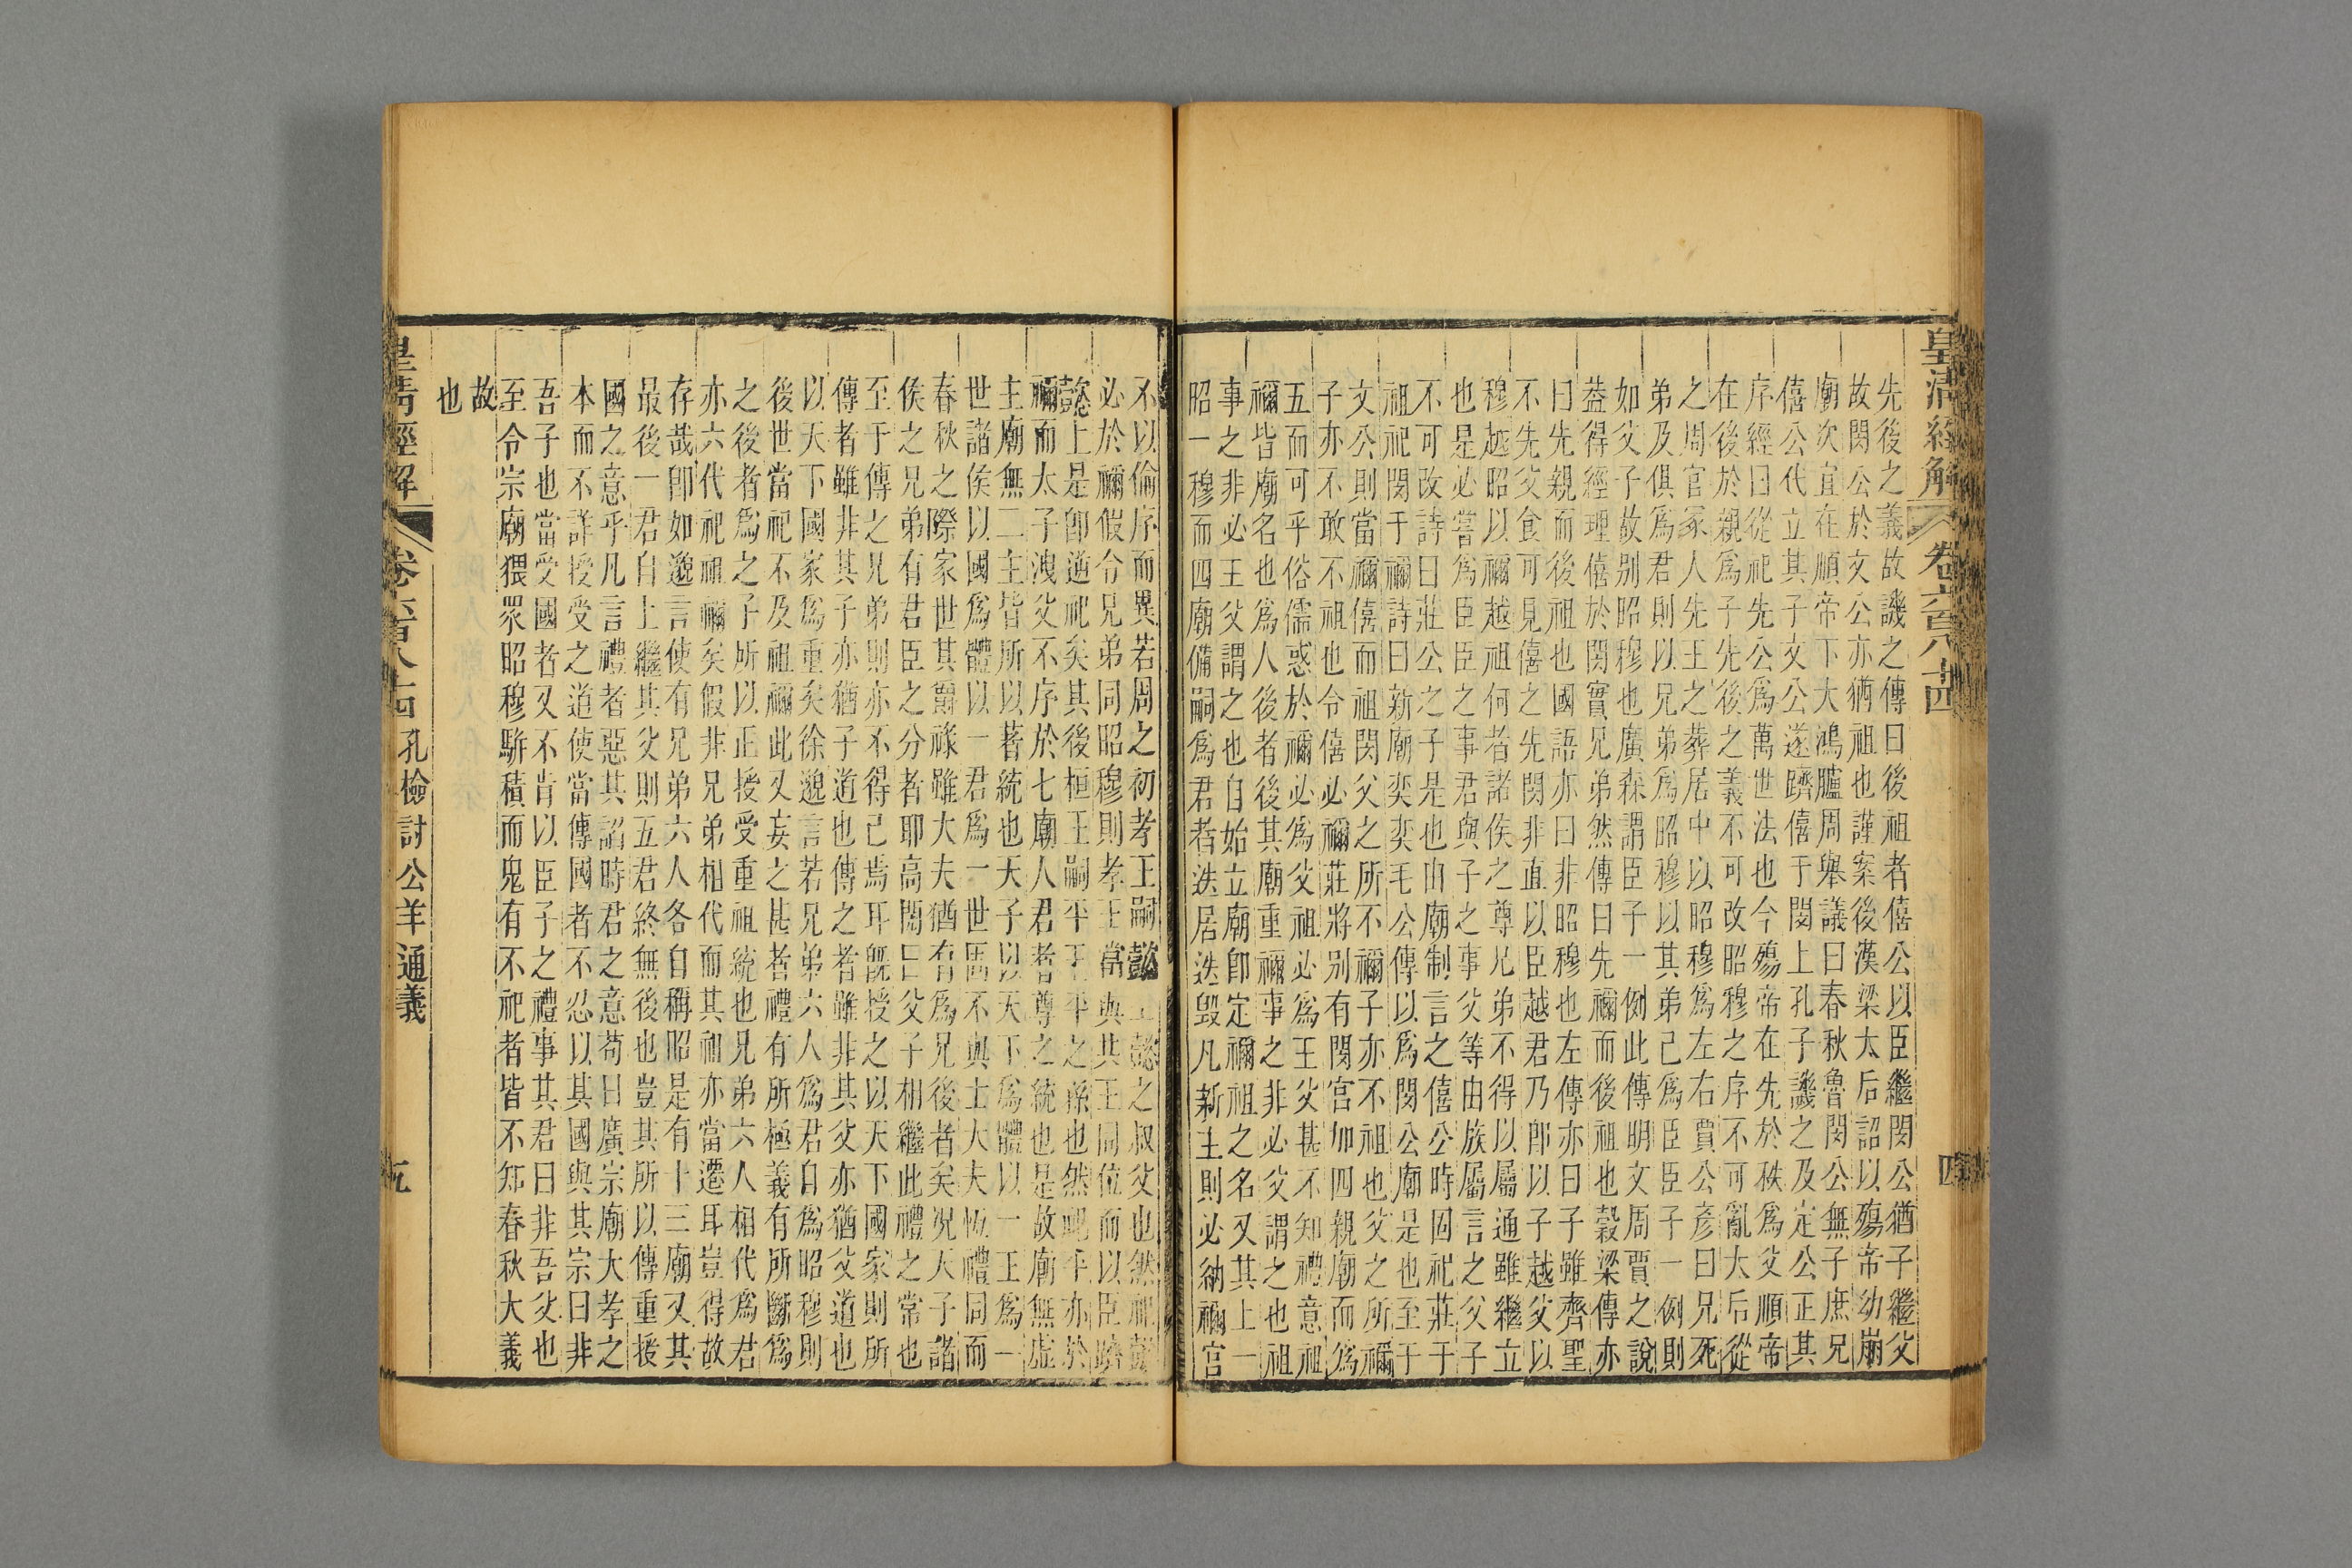 皇清經解 卷六百八十四 四
先後之義故譏之傳曰後祖者僖公以臣繼閔公猶子繼父
故閔公於文公亦猶祖也謹案後漢梁太后詔以殤帝幼崩
廟次宜在順帝下大鴻臚周舉議曰春秋魯閔公無子庶兄
僖公代立其子文公遂躋僖于閔上孔子譏之及定公正其
序經曰從祀先公爲萬世法也今殤帝在先於秩爲父順帝
在後於親爲子先後之義不可改昭穆之序不可亂太后從
之周官冢人先王之葬居中以昭穆爲左右賈公彥曰兄死
弟及俱爲君則以兄弟爲昭穆以其弟己爲臣臣子一例則
如父子故別昭穆也廣森謂臣子一例此傳明文周賈之說
葢得經理僖於閔實兄弟然傳曰先禰而後祖也穀梁傳亦
曰先親而後祖也國語亦曰非昭穆也左傳亦曰子雖齊聖
不先父食可見僖之先閔非直以臣越君乃卽以子越父以
穆越昭以禰越祖何者諸侯之尊兄弟不得以屬通雖繼立
也是必嘗爲臣臣之事君與子之事父等由族屬言之父子
不可改詩曰莊公之子是也由廟制言之僖公時固祀莊于
祖祀閔于禰詩曰新廟奕奕毛公傳以爲閔公廟是也至于
文公則當禰僖而祖閔父之所不禰子亦不祖也父之所禰
子亦不敢不祖也令僖必禰莊將別有閔宮加四親廟而爲
五而可乎俗儒惑於禰必爲父祖必爲王父甚不知禮意祖
禰皆廟名也爲人後者後其廟重禰事之非必父謂之也祖
事之非必王父謂之也自始立廟卽定禰祖之名又其上一
昭一穆而四廟備嗣爲君者迭居迭毀凡新主則必納禰宮
不以倫序而異若周之初孝王嗣懿王懿之叔父也然祀懿
必於禰假令兄弟同昭穆則孝王當與共王同位而以臣躋
懿上是卽逆祀矣其後桓王嗣平王平之孫也然祀平亦於
禰而太子洩父不序於七廟人君者尊之統也是故廟無虛
主廟無二主皆所以著統也天子以天下爲體以一王爲一
世諸侯以國爲體以一君爲一世固不與士大夫恆禮同而
春秋之際家世其爵祿雖大夫猶有爲兄後者矣況天子諸
侯之兄弟有君臣之分者耶高閌曰父子相繼此禮之常也
至于傳之兄弟則亦不得已焉耳旣授之以天下國家則所
傳者雖非其子亦猶子道也傳之者雖非其父亦猶父道也
以天下國家爲重矣徐邈言若兄弟六人爲君自爲昭穆則
後世當祀不及祖禰此又妄之甚者禮有所極義有所斷爲
之後者爲之子所以正授受重祖統也兄弟六人相代爲君
亦六代祀祖禰矣假非兄弟相代而其祖亦當遷耳豈得故
存哉卽如邈言使有兄弟六人各自稱昭是有十三廟又其
最後一君自上繼其父則五君終無後也豈其所以傳重授
國之意乎凡言禮者惡其諂時君之意苟曰廣宗廟大孝之
本而不詳授受之道使當傳國者不忍以其國與其宗曰非
吾子也當受國者又不肯以臣子之禮事其君曰非吾父也
至令宗廟猥眾昭穆駢積而鬼有不祀者皆不知春秋大義
故
也
皇清經解 卷六百八十四 孔檢討公羊通義 五